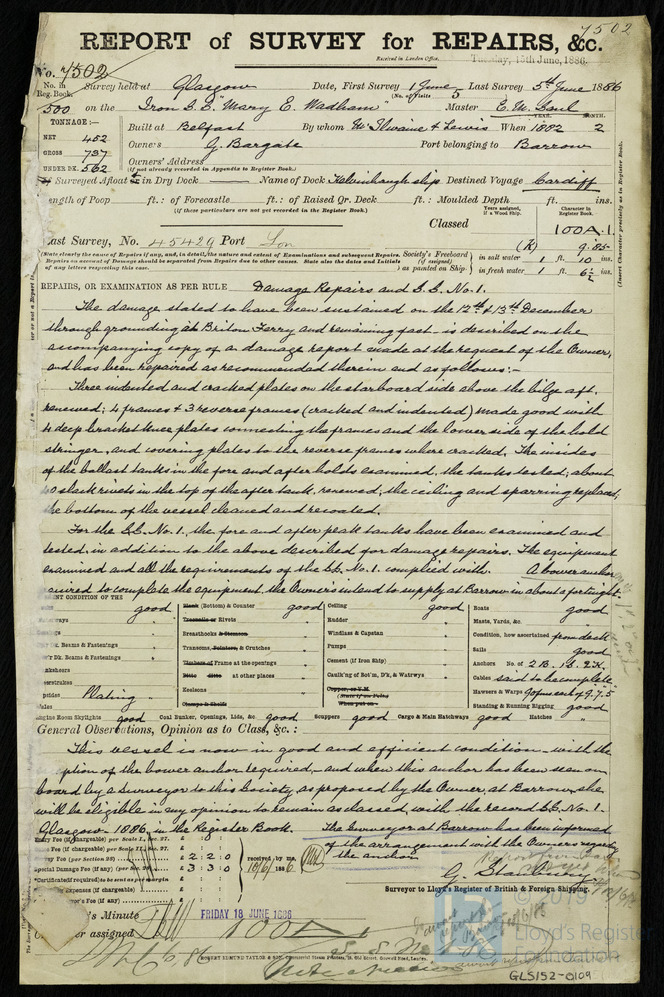 7502
REPORT of SURVEY for REPAIRS, &c.
Received in London Office. Tuesday, 15th June, 1886.
No. 7502
No. in Reg. Book. Survey held at Glasgow Date, First Survey 1 June Last Survey 5th June 1886
(No. of Visits 5
500 on the Iron S.S. "Mary E. Wadham" Master E. W.
TONNAGE:— YEAR. MONTH.
NET 452 Built at Belfast By whom McIlwaine & Lewis When 1882 2
GROSS 737 Owners G. Bargate Port belonging to Barrow
UNDER DK. 562 Owners' Address
(If not already recorded in Appendix to Register Book.)
Surveyed Afloat & in Dry Dock Name of Dock Kelvinhaugh slip Destined Voyage Cardiff
ength of Poop ft. : of Forecastle ft. : of Raised Qr. Deck ft. : Moulded Depth ft. ins.
(If these particulars are not yet recorded in the Register Book.) Years assigned, if a Wood Ship. Character in Register Book.
Classed 100A.1.
ast Survey, No. 45429 Port Lon (K) 9.85
(State clearly the cause of Repairs if any, and, in detail, the nature and extent of Examinations and subsequent Repairs. Repairs on account of Damage should be separated from Repairs due to other causes. State also the dates and Initials of any letters respecting this case.
Society's Freeboard (if assigned) as painted on Ship in salt water 1 ft. 10 ins.
in fresh water 1 ft. 6½ ins.
REPAIRS, OR EXAMINATION AS PER RULE Damage Repairs and S.S. No. 1.
The damage stated to have been sustained on the 12th & 13th December
through grounding at Briton Ferry and remaining fast is described on the
accompanying copy of a damage report made at the request of the Owner,
and has been repaired as recommended therein and as follows:-
Three indented and cracked plates on the starboard side above the bilge aft.
renewed; 4 frames & 3 reverse frames (cracked and indented) made good with
4 deep bracket knee plates connecting the frames and the lower side of the hold
stringer, and covering plates to the reverse frames where cracked. The insides
of the ballast tanks in the fore and after holds examined, the tanks tested; about
slack rivets in the top of the after tank renewed, the ceiling and sparring replaced;
the bottom of the vessel cleaned and recoated.
For the S.S. No. 1, the fore and after peak tanks have been examined and
tested, in addition to the above described for damage repairs. The equipment
examined and all the requirements of the S.S. No. 1 complied with. A bower anchor
quired to complete the equipment, the Owners intend to supply at Barrow in about a fortnight.
ENT CONDITION OF THE
good Blank (Bottom) & Counter good Ceiling good Boats good
Treenails or Rivets Rudder Masts, Yards, &c.
Breasthooks & Stemson Windlass & Capstan Condition, how ascertained from deck
Dk. Beams & Fastenings Transoms, Pointers, & Crutches Pumps Sails good
Dk. Beams & Fastenings Timbers of Frame at the openings Cement (if Iron Ship) Anchors No. of 2 B. 1 S. 2 K.
Ditto ditto at other places Caulk'g of Bot'm, D'k, & Watrwys Cables said to be complete
Keelsons Copper, or Y.M. Hawsers & Warps
Plating Clamps & Shelfs Standing & Running Rigging good
Engine Room Skylights good Coal Bunker, Openings, Lids, &c good Scuppers good Cargo & Main Hatchways good Hatches "
General Observations, Opinion as to Class, &c. :
This vessel is now in good and efficient condition with the
ption of the bower anchor required, and when this anchor has been seen on
board by a Surveyor to this Society, as proposed by the Owner, at Barrow, she
will be eligible in my opinion to remain as classed, with the record S.S. No. 1.
Glasgow - 1886, in the Register Book. The Surveyor at Barrow has been informed
of the arrangement with the Owners regardg
the anchor.
Entry Fee (if chargeable) per Scale I. Sec. 27. £ : :
Fee (if chargeable) per Scale II. Sec. 27. £ : :
y Fee (per Section 28) £ 2 : 2 : 0 received by me,
Special Damage Fee (if any) (per Sec. 28) £ 3 : 3 : 0 10/6/ 1886
(Certificate (if required) to be sent as per margin
Expenses (if chargeable) £ : :
's Fee (if any) £ : :
G. Stanbury
Surveyor to Lloyd's Register of British & Foreign Shipping.
's Minute FRIDAY 18 JUNE 1886
er assigned 100A1
S.S. No 1
ROBERT EDMUND TAYLOR & SON, General Steam Printers, 19, Old Street, Goswell Road, London.
(Insert Character precisely as in Register Book.)
© 2019
Lloyd's Register
Foundation
GLS152-0109